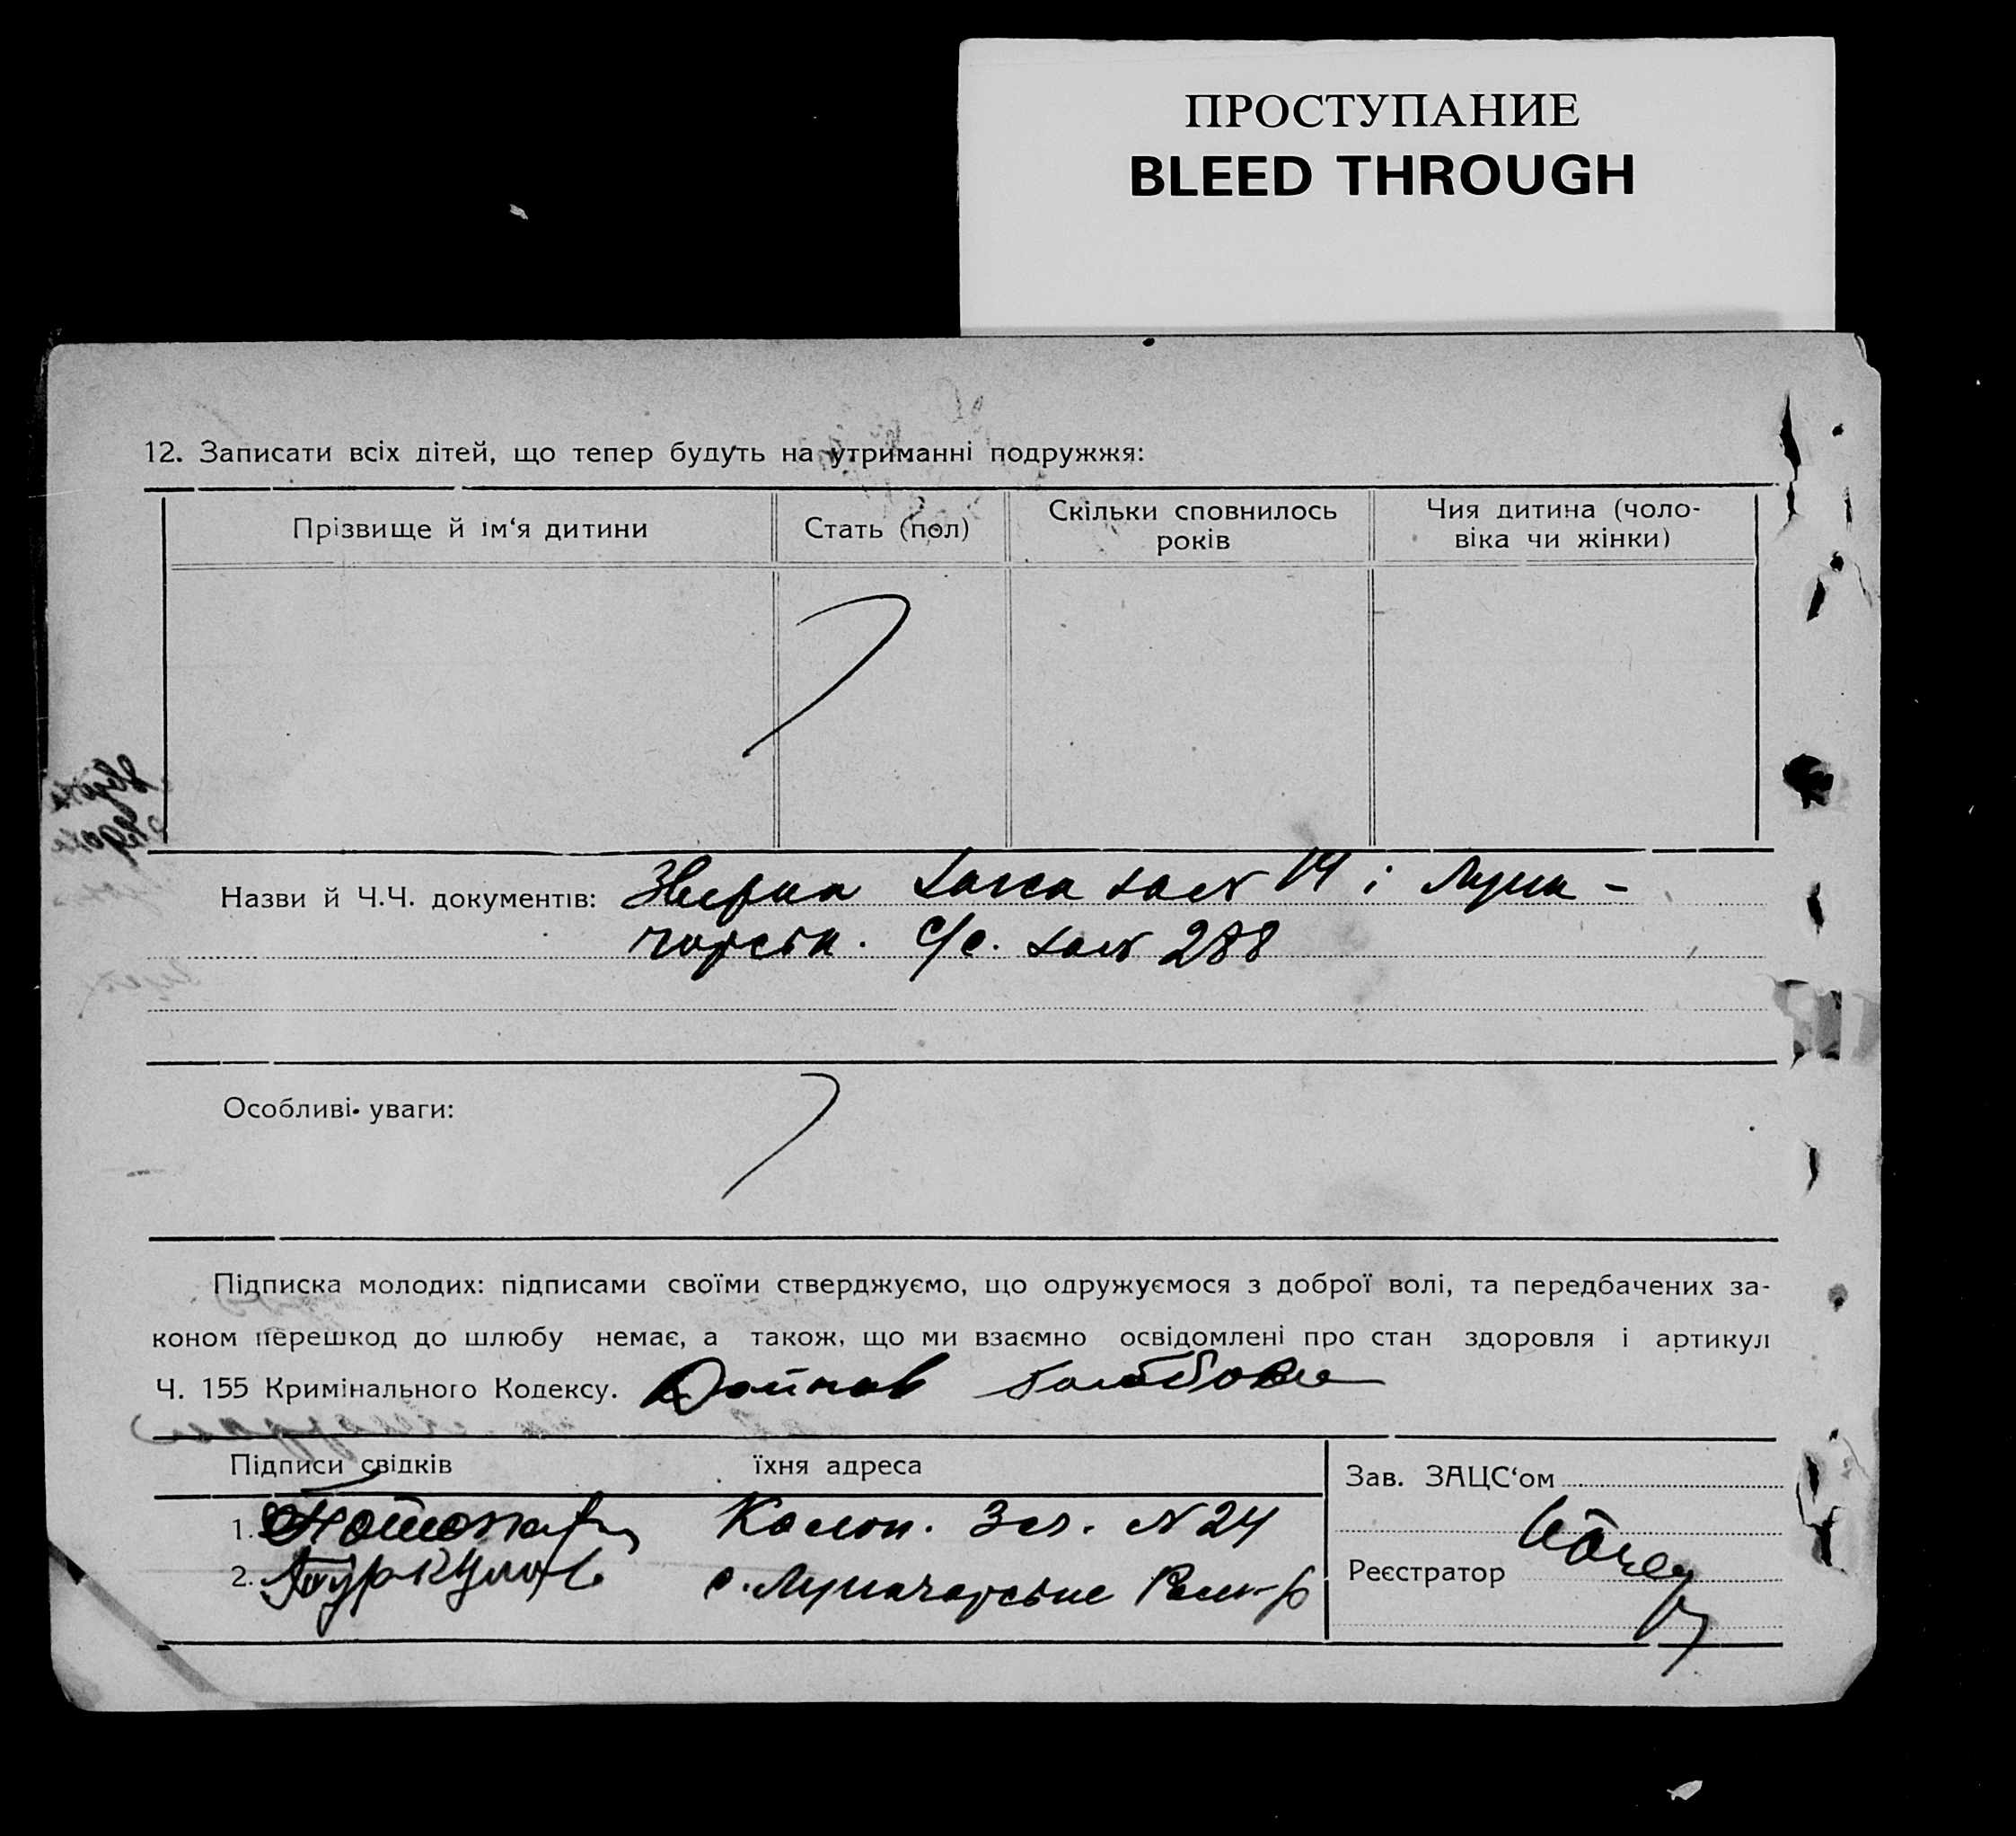 ПРОСТУПАНИЕ
BLEED THROUGH
12. Записати всіх дітей, що тепер будуть на утриманні подружжя:
Прізвище й ім‘я дитини
Стать (пол)
Скільки сповнилось
років
Чия дитина (чоло-
віка чи жінки)
Назви й Ч.Ч. документів:
14 і Луна-
чарськ. с/с. 288
Особливі уваги:
Підписка молодих: підписами своїми стверджуємо, що одружуємося з доброї волі, та передбачених за-
коном перешкод до шлюбу немає, а також, що ми взаємно освідомлені про стан здоровля і артикул
Ч. 155 Кримінального Кодексу. Дойнов
Підписи свідків їхня адреса
1. Колон. N 24
2. с. Луначарське
Зав. ЗАЦС‘ом
Реєстратор